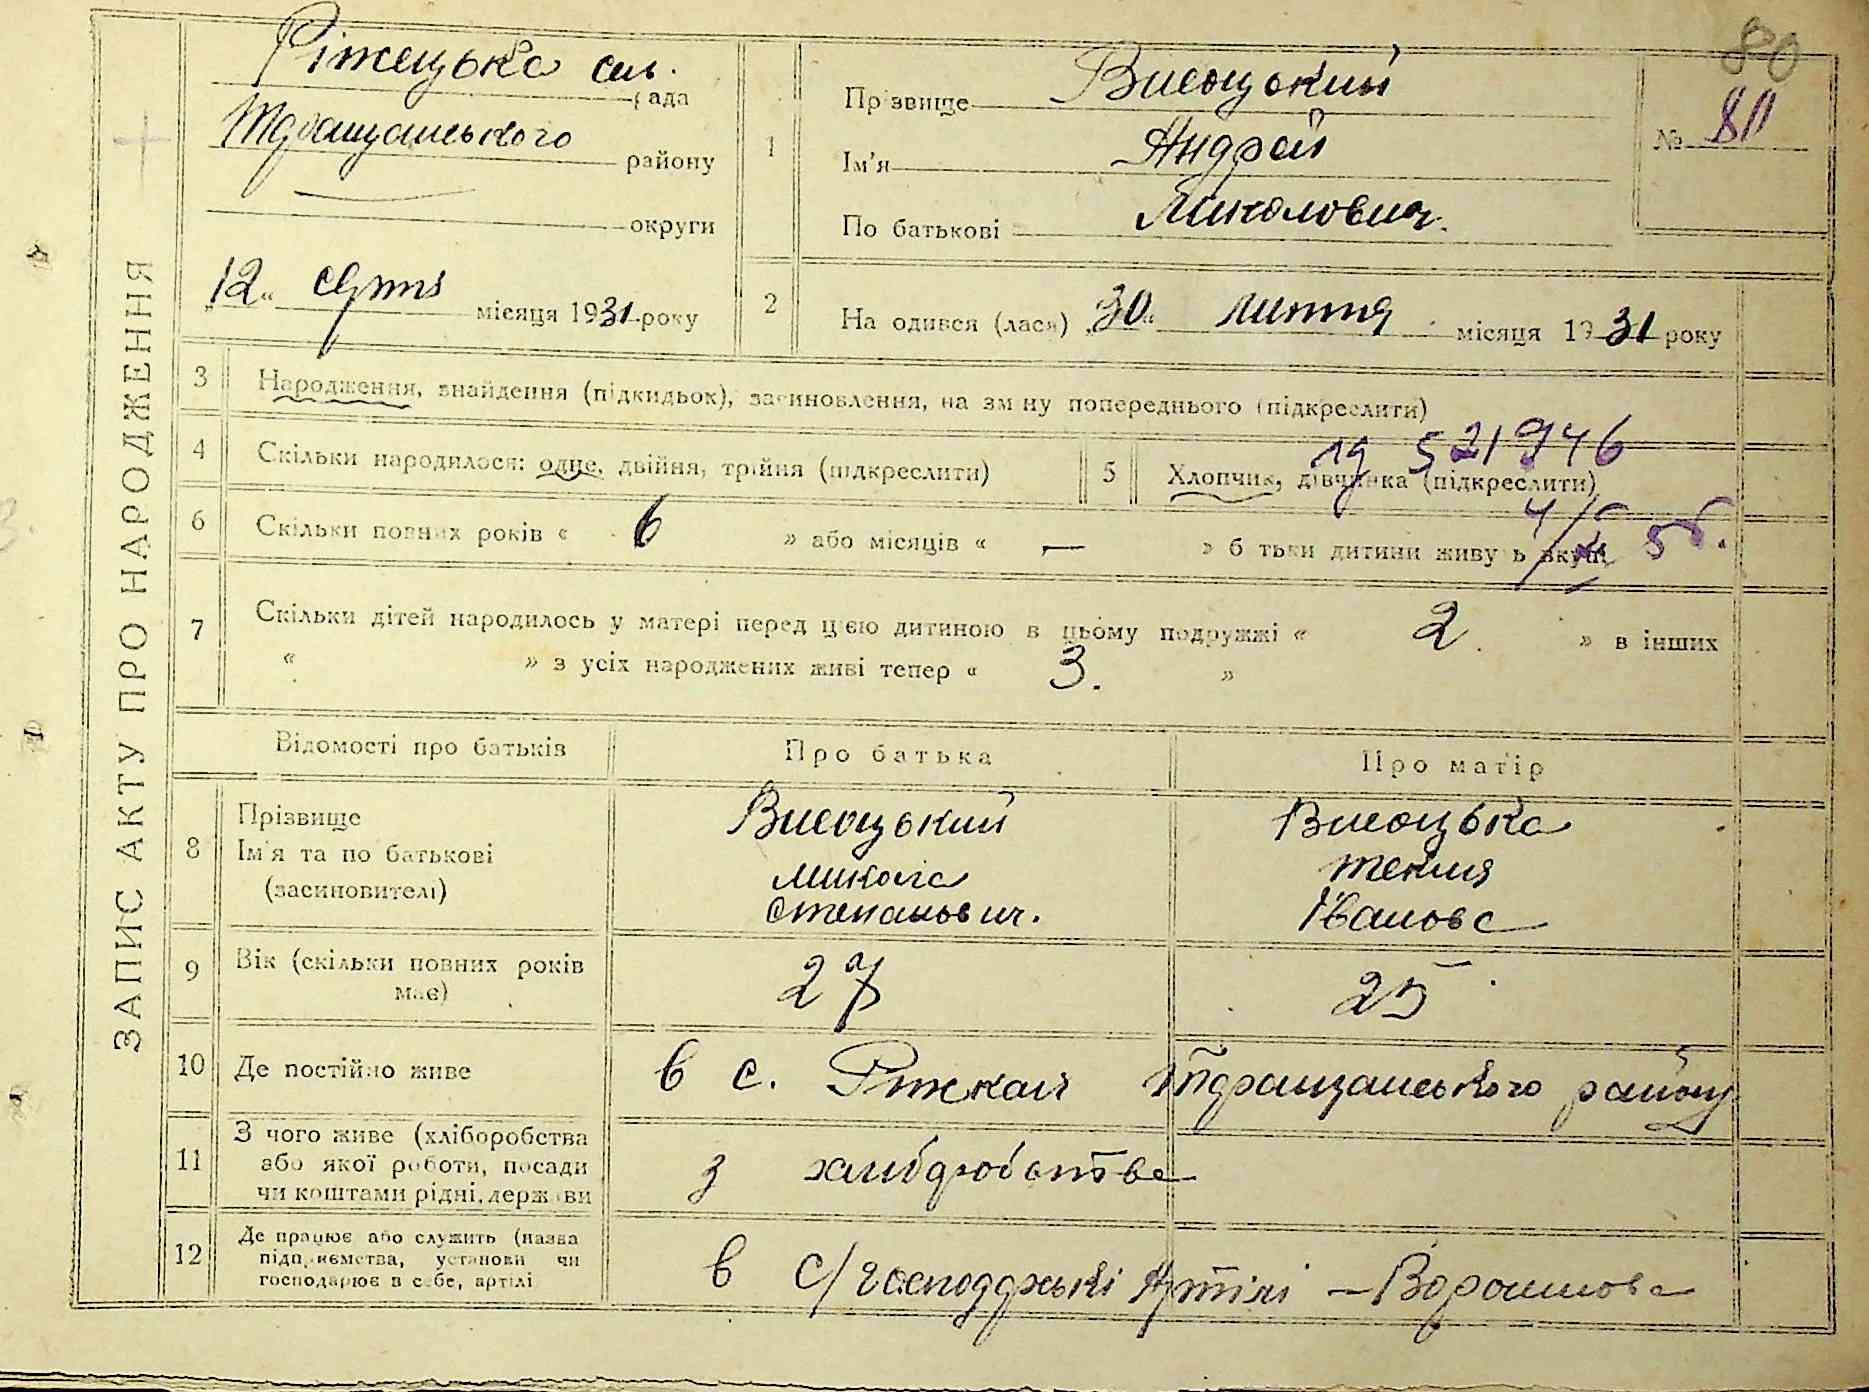 80
ЗАПИС АКТУ ПРО НАРОДЖЕННЯ
Ріжецька сіль. рада
Таращанського району
округи
"12" серпня місяця 1931 року
1
Прізвище Висоцький
Ім'я Андрей
По батькові Миколович.
№ 80
2 На одився (лася) "30" липня місяця 1931 року
3 Народження, знайдення (підкидьок), засиновлення, на зм ну попереднього (підкреслити)
4 Скільки народилося: одне, двійня, трійня (підкреслити)
5 Хлопчик, дівчинка (підкреслити)
521946
6 Скільки повних років « 6 » або місяців « — » б тьки дитини живу ь вкупі
7 Скільки дітей народилось у матері перед цією дитиною в цьому подружжі « 2. » в інших
« » з усіх народжених живі тепер « 3. »
Відомості про батьків Про батька Про матір
8 Прізвище Висоцький Висоцька
Ім'я та по батькові Микола Текля
(засиновителі) Степанович. Івановс
9 Вік (скільки повних років 27 25
має)
10 Де постійно живе в с. Ріжках Таращанського району
11 З чого живе (хліборобства
або якої роботи, посади з хліборобства
чи коштами рідні, держави
12 Де працює або служить (назва
підприємства, установи чи в с/господарські Артілі – Ворошилова
господарює в себе, артілі